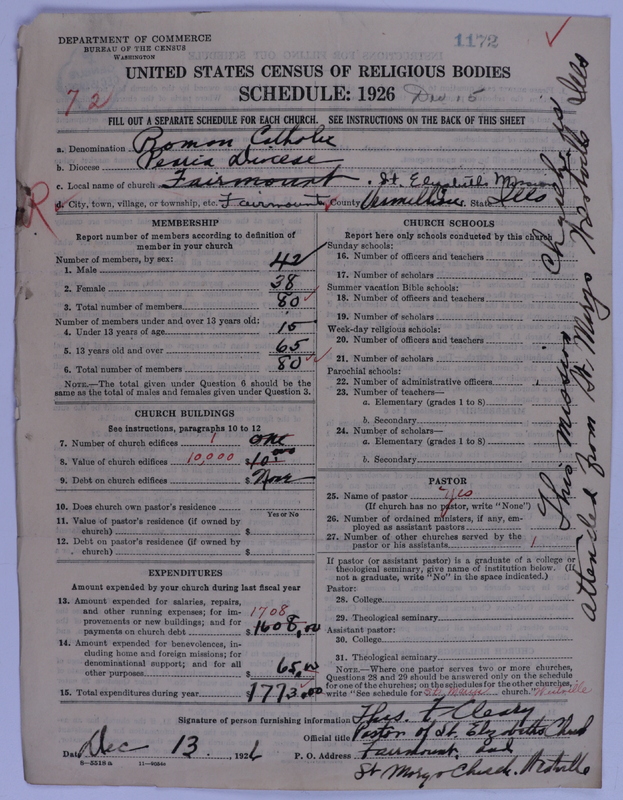 DEPARTMENT OF COMMERCE
BUREAU OF THE CENSUS
WASHINGTON
1172
UNITED STATES CENSUS OF RELIGIOUS BODIES
72
SCHEDULE: 1926
Dec 15
FILL OUT A SEPARATE SCHEDULE FOR EACH CHURCH. SEE INSTRUCTIONS ON THE BACK OF THIS SHEET
a. Denomination Roman Catholic
b. Diocese Peoria Diocese
c. Local name of church Fairmount. St. Elizabeths Mission
d. City, town, village, or township, etc. Fairmount County Vermillion State Ills
R
MEMBERSHIP
Report number of members according to definition of
member in your church
Number of members, by sex:
1. Male 42
2. Female 38
3. Total number of members 80
Number of members under and over 13 years old:
4. Under 13 years of age 15
5. 13 years old and over 65
6. Total number of members 80
NOTE.—The total given under Question 6 should be the
same as the total of males and females given under Question 3.
CHURCH BUILDINGS
See instructions, paragraphs 10 to 12
7. Number of church edifices 1 one
8. Value of church edifices 10,000 $
9. Debt on church edifices $ None
10. Does church own pastor's residence
Yes or No
11. Value of pastor's residence (if owned by
church) $
12. Debt on pastor's residence (if owned by
church) $
EXPENDITURES
Amount expended by your church during last fiscal year
13. Amount expended for salaries, repairs,
and other running expenses; for im- 1708
provements or new buildings; and for
payments on church debt $ 1608,00
14. Amount expended for benevolences, in-
cluding home and foreign missions; for
denominational support; and for all
other purposes $ 65,00
15. Total expenditures during year $ 1773.00
CHURCH SCHOOLS
Report here only schools conducted by this church
Sunday schools:
16. Number of officers and teachers
17. Number of scholars
Summer vacation Bible schools:
18. Number of officers and teachers
19. Number of scholars
Week-day religious schools:
20. Number of officers and teachers
21. Number of scholars
Parochial schools:
22. Number of administrative officers
23. Number of teachers—
a. Elementary (grades 1 to 8)
b. Secondary
24. Number of scholars—
a. Elementary (grades 1 to 8)
b. Secondary
PASTOR
25. Name of pastor Yes
(If church has no pastor, write "None")
26. Number of ordained ministers, if any, em-
ployed as assistant pastors
27. Number of other churches served by the
pastor or his assistants 1
If pastor (or assistant pastor) is a graduate of a college or
theological seminary, give name of institution below. (If
not a graduate, write "No" in the space indicated.)
Pastor:
28. College
29. Theological seminary
Assistant pastor:
30. College
31. Theological seminary
NOTE.—Where one pastor serves two or more churches,
Questions 28 and 29 should be answered only on the schedule
for one of the churches; on the schedules for the other churches,
write "See schedule for St. Marys church." Westville
This mission Church is
attended from St Marys Westville Ills
Signature of person furnishing information Thos. F. Cleary
Official title Pastor of St. Elizabeths Church
Date Dec 13, 1926 P. O. Address Fairmount, and
St Marys Church. Westville
8—5518a 11—9054a